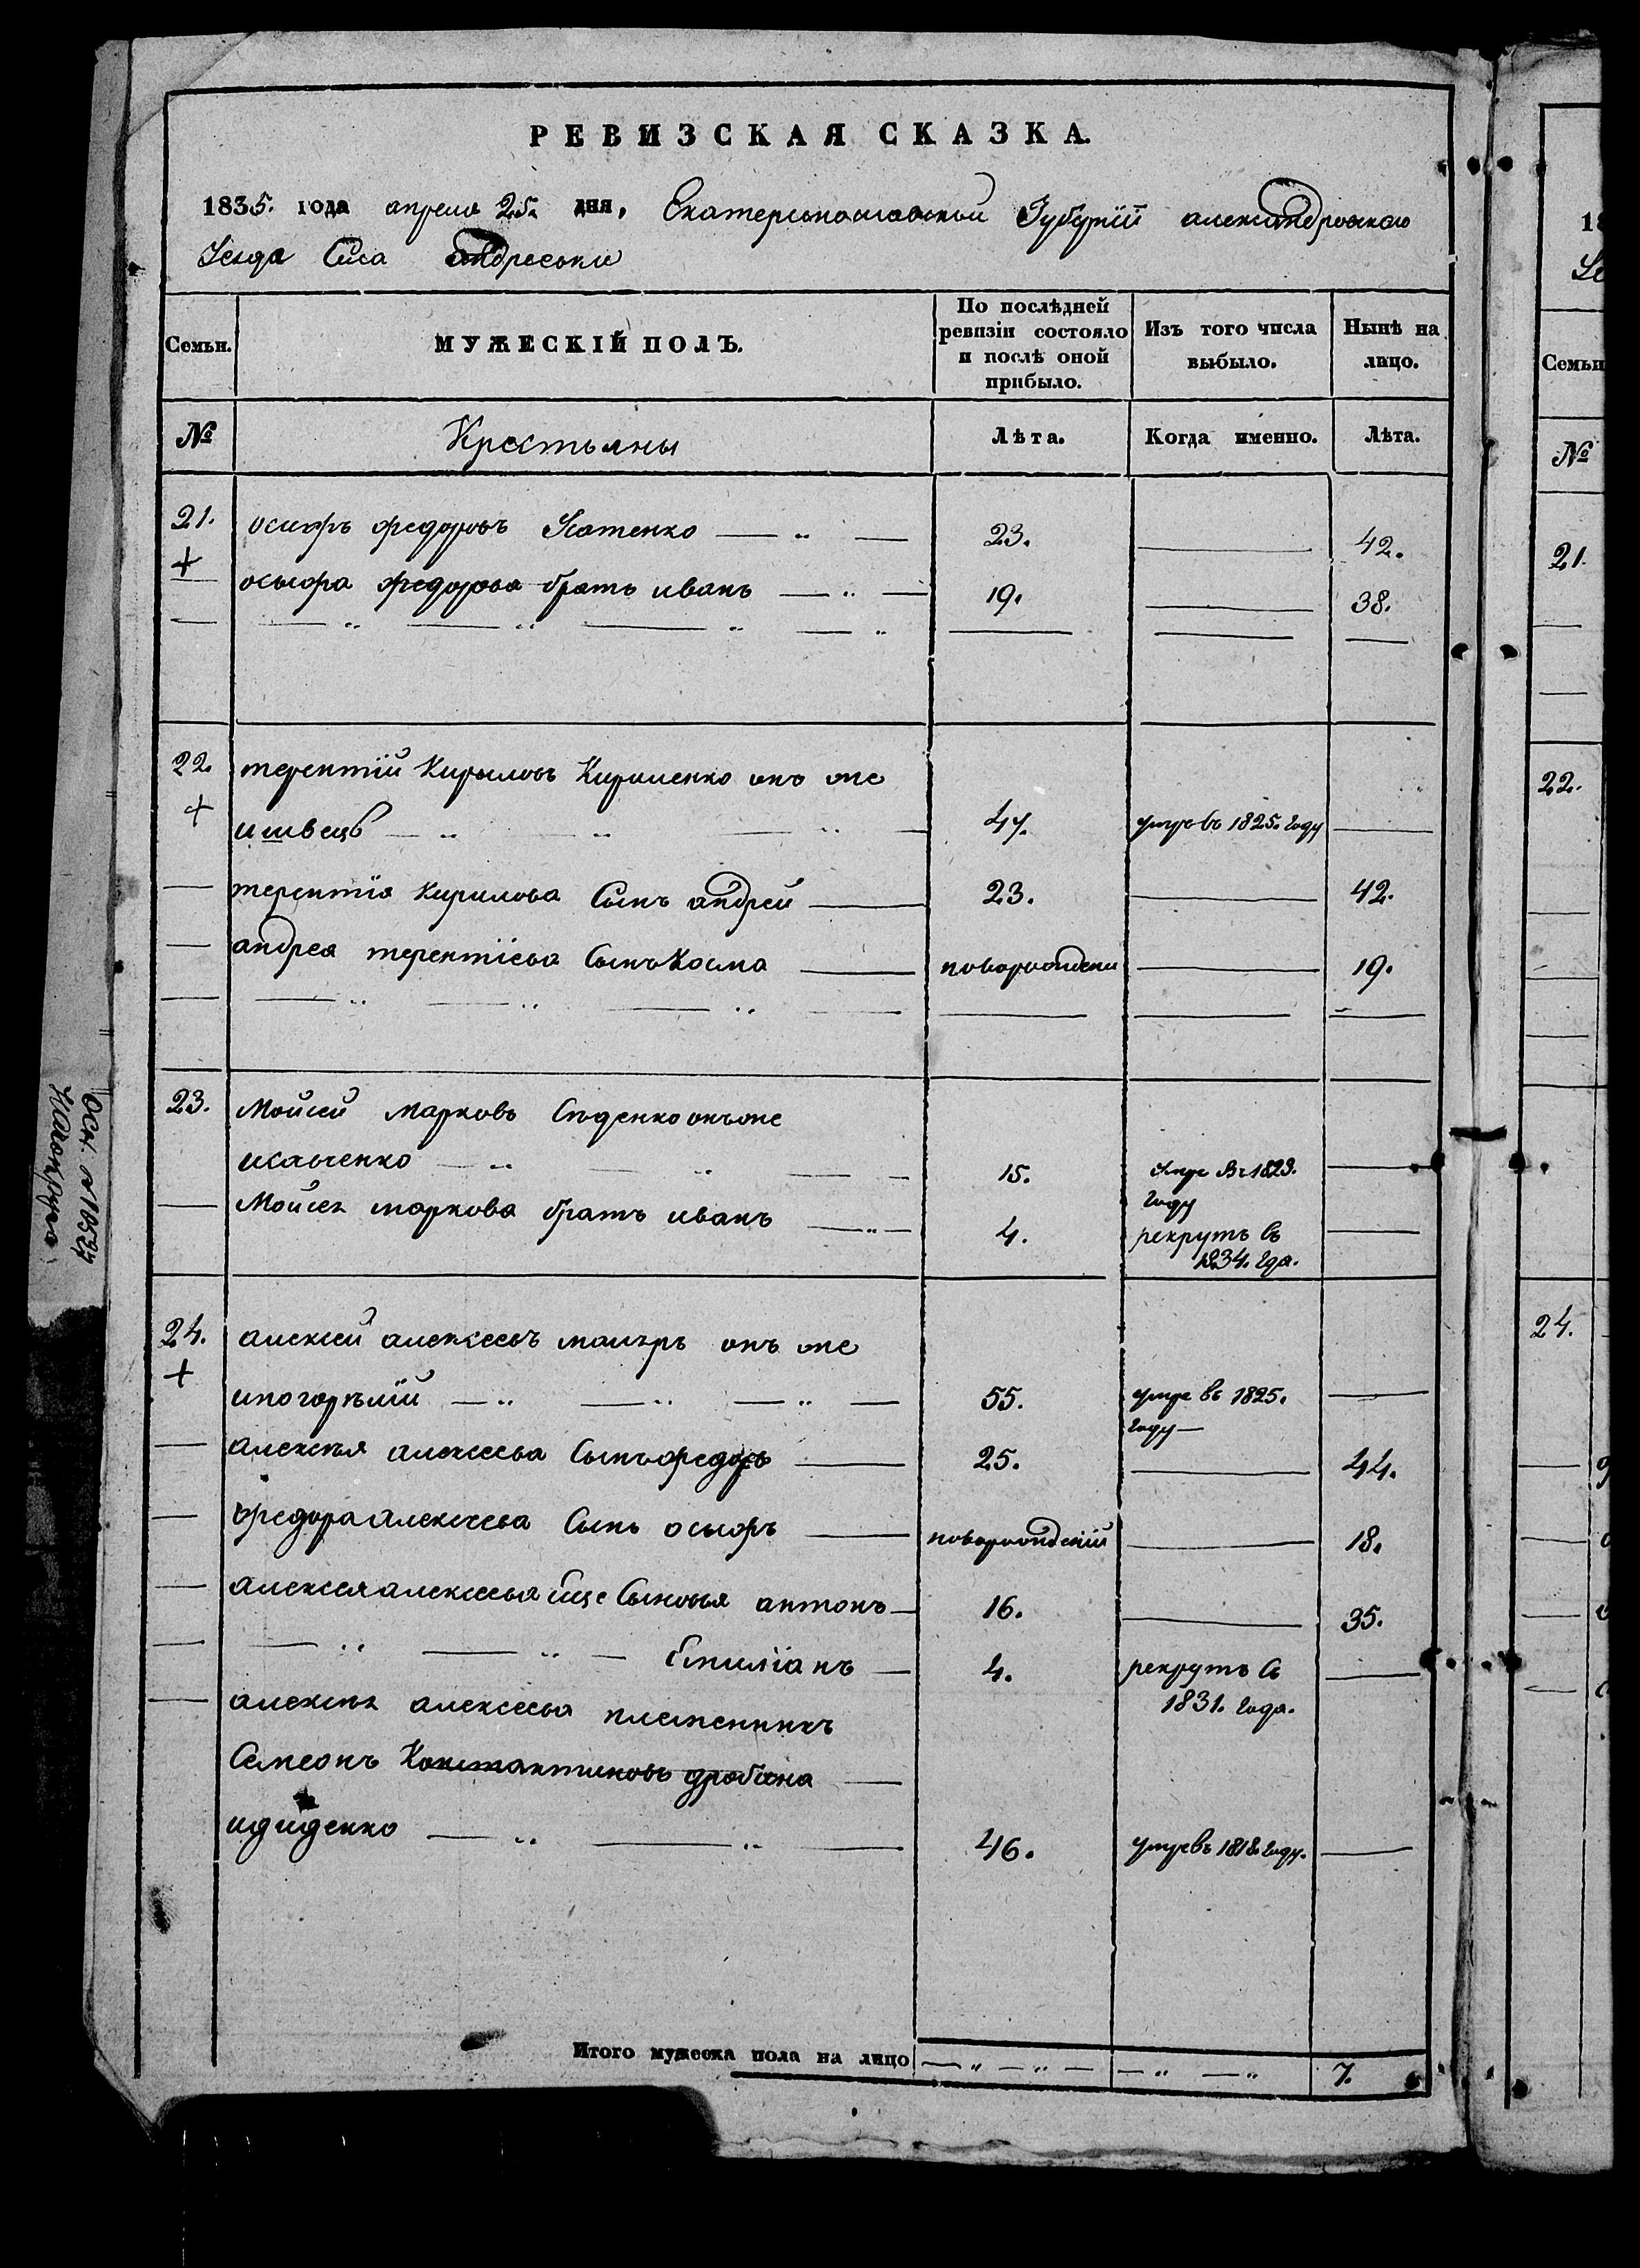 РЕВИЗСКАЯ СКАЗКА.
1835. года апреля 25. дня, Екатеринославской Губернїй александровскаго
Уезда Села андреевки
Семьи. МУЖЕСКІЙ ПОЛЪ. По послѣдней ревизіи состояло и послѣ оной прибыло. Изъ того числа выбыло. Нынѣ на лицо.
№ Крестьяны Лѣта. Когда именно. Лѣта.
21. осифъ федоровъ 23. 42.
+ осифа федорова братъ иванъ 19. 38.
22. терентїй Кириловъ Кириленко онъ же
+ ишвецъ 47. умре въ 1825. году
терентїя Кирилова Сынъ андрей 23. 42.
андрея терентїева Сынъ Косма новорожденн 19.
23. Мойсей Марковъ онъ же
исаченко 15. умре въ 1823.
году
Мойсея маркова братъ иванъ 4. рекрутъ въ
1834. года.
24. алексей алексеевъ онъ же
+ ипогорѣлїй 55. умре въ 1825.
году
алексѣя алексеева Сынъ федоръ 25. 44.
федора алексеева Сынъ осифъ новорожденїй 18.
алексея алексеева еще Сыновья антонъ 16. 35.
Емилїанъ 4. рекрутъ въ
1831. года.
алексѣя алексеева племенникъ
Семеонъ Константиновъ
идиденко 46. умре въ 1818. году.
Итого мужеска пола на лицо 7.
21.
22.
24.
Семьи
№